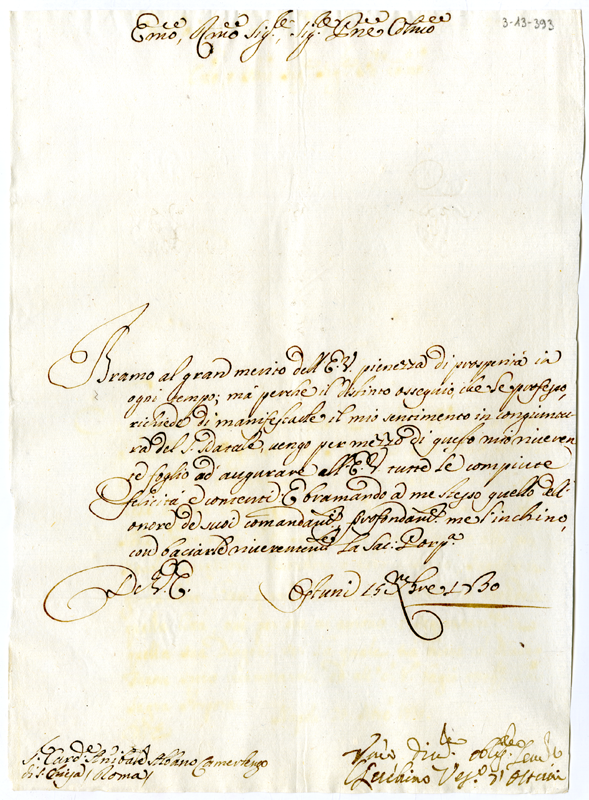 Em̃o, Rm̃o Sig.re, Sig.re Prñe Colmo
3-13-393
Bramo al gran merito dell'E.V. pienezza di prosperità in
ogni tempo; mà perche il distinto ossequio, che le professo,
richiede di manifestarle il mio sentimento in congiuntu-
ra del S. Natale, vengo per mezzo di questo mio riveren
te foglio ad' augurare all'E.V. tutte le compiute
felicità, e contenti. E bramando à me stesso quello dell'
onore de suoi comandam.ti, profondam.te me l'inchino,
con baciarle riverentem.te la Sac. Porp.a
D. V.E. Ostuni 15 Xbre 1730
S.r Card.e Anibale Albano Camerlengo
di S. Chiesa (Roma)
Vm̃o Div.mo Obl.mo
Vesc.o d'Ostuni